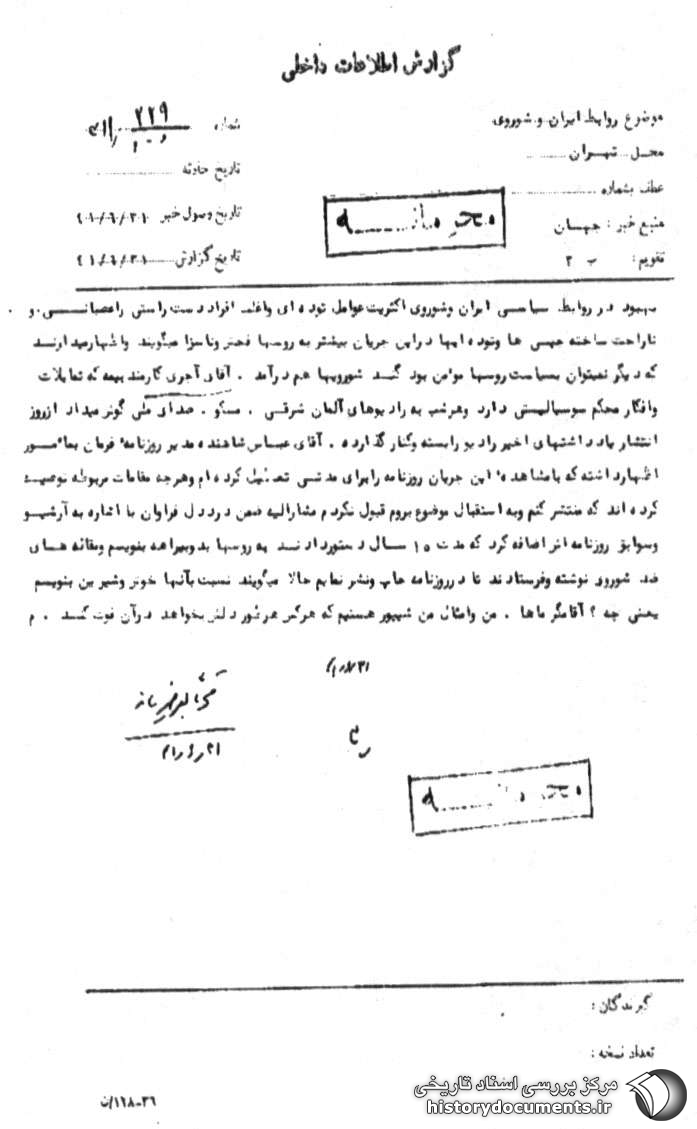 گزارش اطلاعات داخلی
موضوع روابط ایران و شوروی
شماره ۲۲۹
محل تهران
تاریخ حادثه
عطف بشماره
تاریخ وصول خبر ۴۱/۶/۳۱
منبع خبر : جهان
محرمانه
تاریخ گزارش ۴۱/۶/۳۱
تقویم: ب ۲
بهبود در روابط سیاسی ایران وشوروی اکثریت عوامل توده ای واغلب افراد دست راستی را عصبانی و
ناراحت ساخته جبهی ها وتوده ایها دراین جریان بیشتر به روسها فحش وناسزا میگویند واظهار میدارند
که دیگر نمیتوان بسیاست روسها مؤمن بود گند شورویها هم در آمد . آقای آجری کارمند بیمه که تمایلات
وافکار محکم سوسیالیستی دارد وهرشب به رادیوهای آلمان شرقی . مسکو . صدای ملی گوش میداد ازروز
انتشار یادداشتهای اخیر رادیو رابسته وکنار گذارده . آقای عباس شاهنده مدیر روزنامه فرمان بمأمور
اظهار داشته که بامشاهده این جریان روزنامه رابرای مدتی تعطیل کرده ام وهرچه مقامات مربوطه توصیه
کرده اند که منتشر کنم وبه استقبال موضوع بروم قبول نکردم مشارالیه ضمن درددل فراوان با اشاره به آرشیو
وسوابق روزنامه اش اضافه کرد که مدت ۱۰ سال دستور دادند به روسها بدوبیراهه بنویسم ومقاله های
ضد شوروی نوشته وفرستادند تا درروزنامه چاپ ونشر نمایم حالا میگویند نسبت بآنها خوش وشیرین بنویسم
یعنی چه ؟ آقا مگر ماها . من وامثال من شیپور هستیم که هرکس هرطور دلش بخواهد در آن فوت کند . م
محرمانه
گیرندگان :
تعداد نسخه :
۳۶-۱۱۸/ت
مرکز بررسی اسناد تاریخی
historydocuments.ir